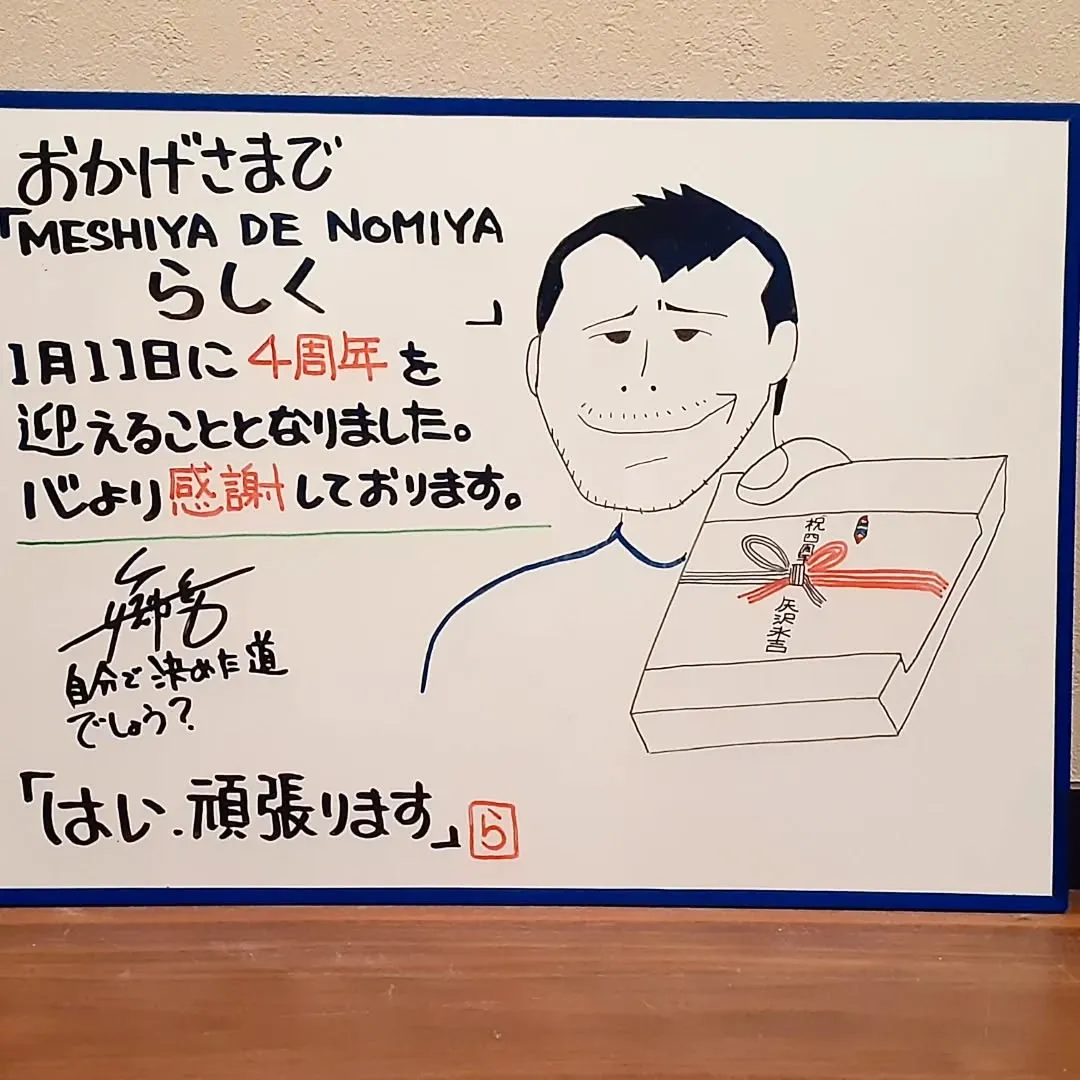 おかげさまで
「MESHIYA DE NOMIYA
らしく」
1月11日に4周年を
迎えることとなりました。
心より感謝しております。
自分で決めた道
でしょう?
「はい、頑張ります」ら
祝四周年
矢沢永吉